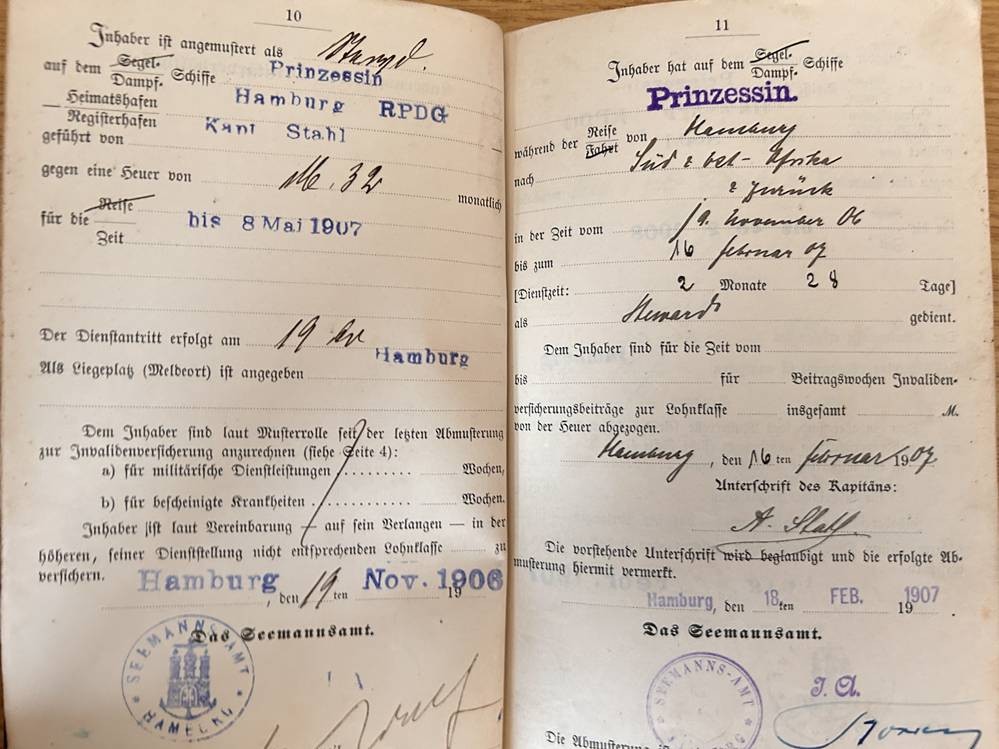 10
Inhaber ist angemustert als Steward.
auf dem Segel- Dampf- Schiffe Prinzessin
Heimatshafen
Registerhafen Hamburg RPDG
geführt von Kapt Stahl
gegen eine Heuer von M. 32 monatlich
für die Reise
Zeit bis 8 Mai 1907
Der Dienstantritt erfolgt am 19
Als Liegeplatz (Meldeort) ist angegeben Hamburg
Dem Inhaber sind laut Musterrolle seit der letzten Abmusterung
zur Invalidenversicherung anzurechnen (siehe Seite 4):
a) für militärische Dienstleistungen ........... Wochen,
b) für bescheinigte Krankheiten ........... Wochen.
Inhaber ist laut Vereinbarung — auf sein Verlangen — in der
höheren, seiner Dienststellung nicht entsprechenden Lohnklasse zu
versichern.
Hamburg, den 19ten Nov. 1906 19
Das Seemannsamt.
SEEMANNSAMT HAMBURG
11
Inhaber hat auf dem Segel- Dampf- Schiffe
Prinzessin.
während der Reise Fahrt von Hamburg
nach Süd & Ost-Afrika
& zurück
in der Zeit vom 19. November 06
bis zum 16 Februar 07
[Dienstzeit: 2 Monate 28 Tage]
als Steward gedient.
Dem Inhaber sind für die Zeit vom
bis für Beitragswochen Invaliden-
versicherungsbeiträge zur Lohnklasse insgesamt M.
von der Heuer abgezogen.
Hamburg, den 16ten Februar 1907
Unterschrift des Kapitäns:
A. Stahl
Die vorstehende Unterschrift wird beglaubigt und die erfolgte Ab-
musterung hiermit vermerkt.
Hamburg, den 18ten FEB. 1907 19
Das Seemannsamt.
SEEMANNS-AMT
J. A.
Die Abmusterung